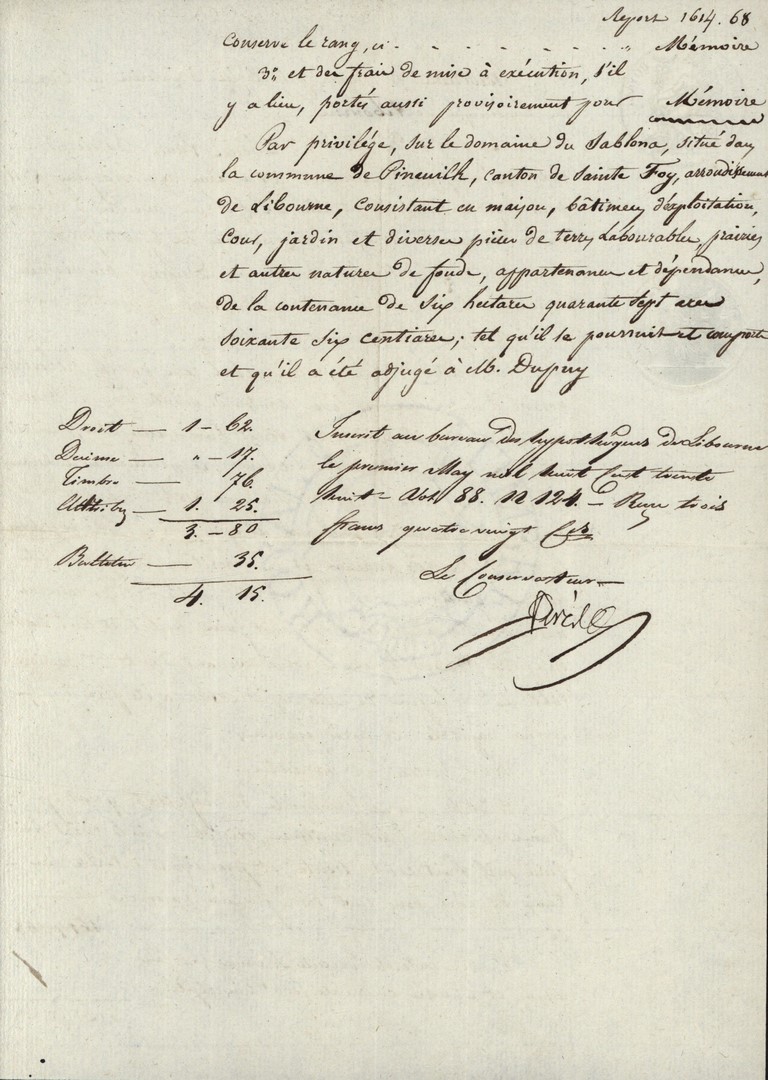 Report 1614. 68
Conserve le rang, ci - - - - - - - - " Mémoire
3° et des frais de mise à exécution, s'il
y a lieu, portés aussi provisoirement pour Mémoire
Par privilége, sur le domaine du Sablona, situé dans
la commune de Pineuilh, canton de Sainte Foy, arrondissement
de Libourne, Consistant en maison, bâtimens d'exploitation,
Cour, jardin et diverses pièces de terres Labourables, prairies
et autres natures de fonds, appartenances et dépendances,
de la contenance de six hectares quarante sept ares
soixante six centiares; tel qu'il se poursuit et comporte
et qu'il a été adjugé à M. Dupuy
Droit — 1 – 62.
Décime — " – 17.
Timbre — 76.
— 1. 25.
3. – 80
Bulletin — 35.
4. 15.
Inscrit au bureau des hypothèques de Libourne
le premier May mil huit Cent trente
huit – Vol. 88. N 124. – Reçu trois
francs quatre vingt Ces
Le Conservateur —